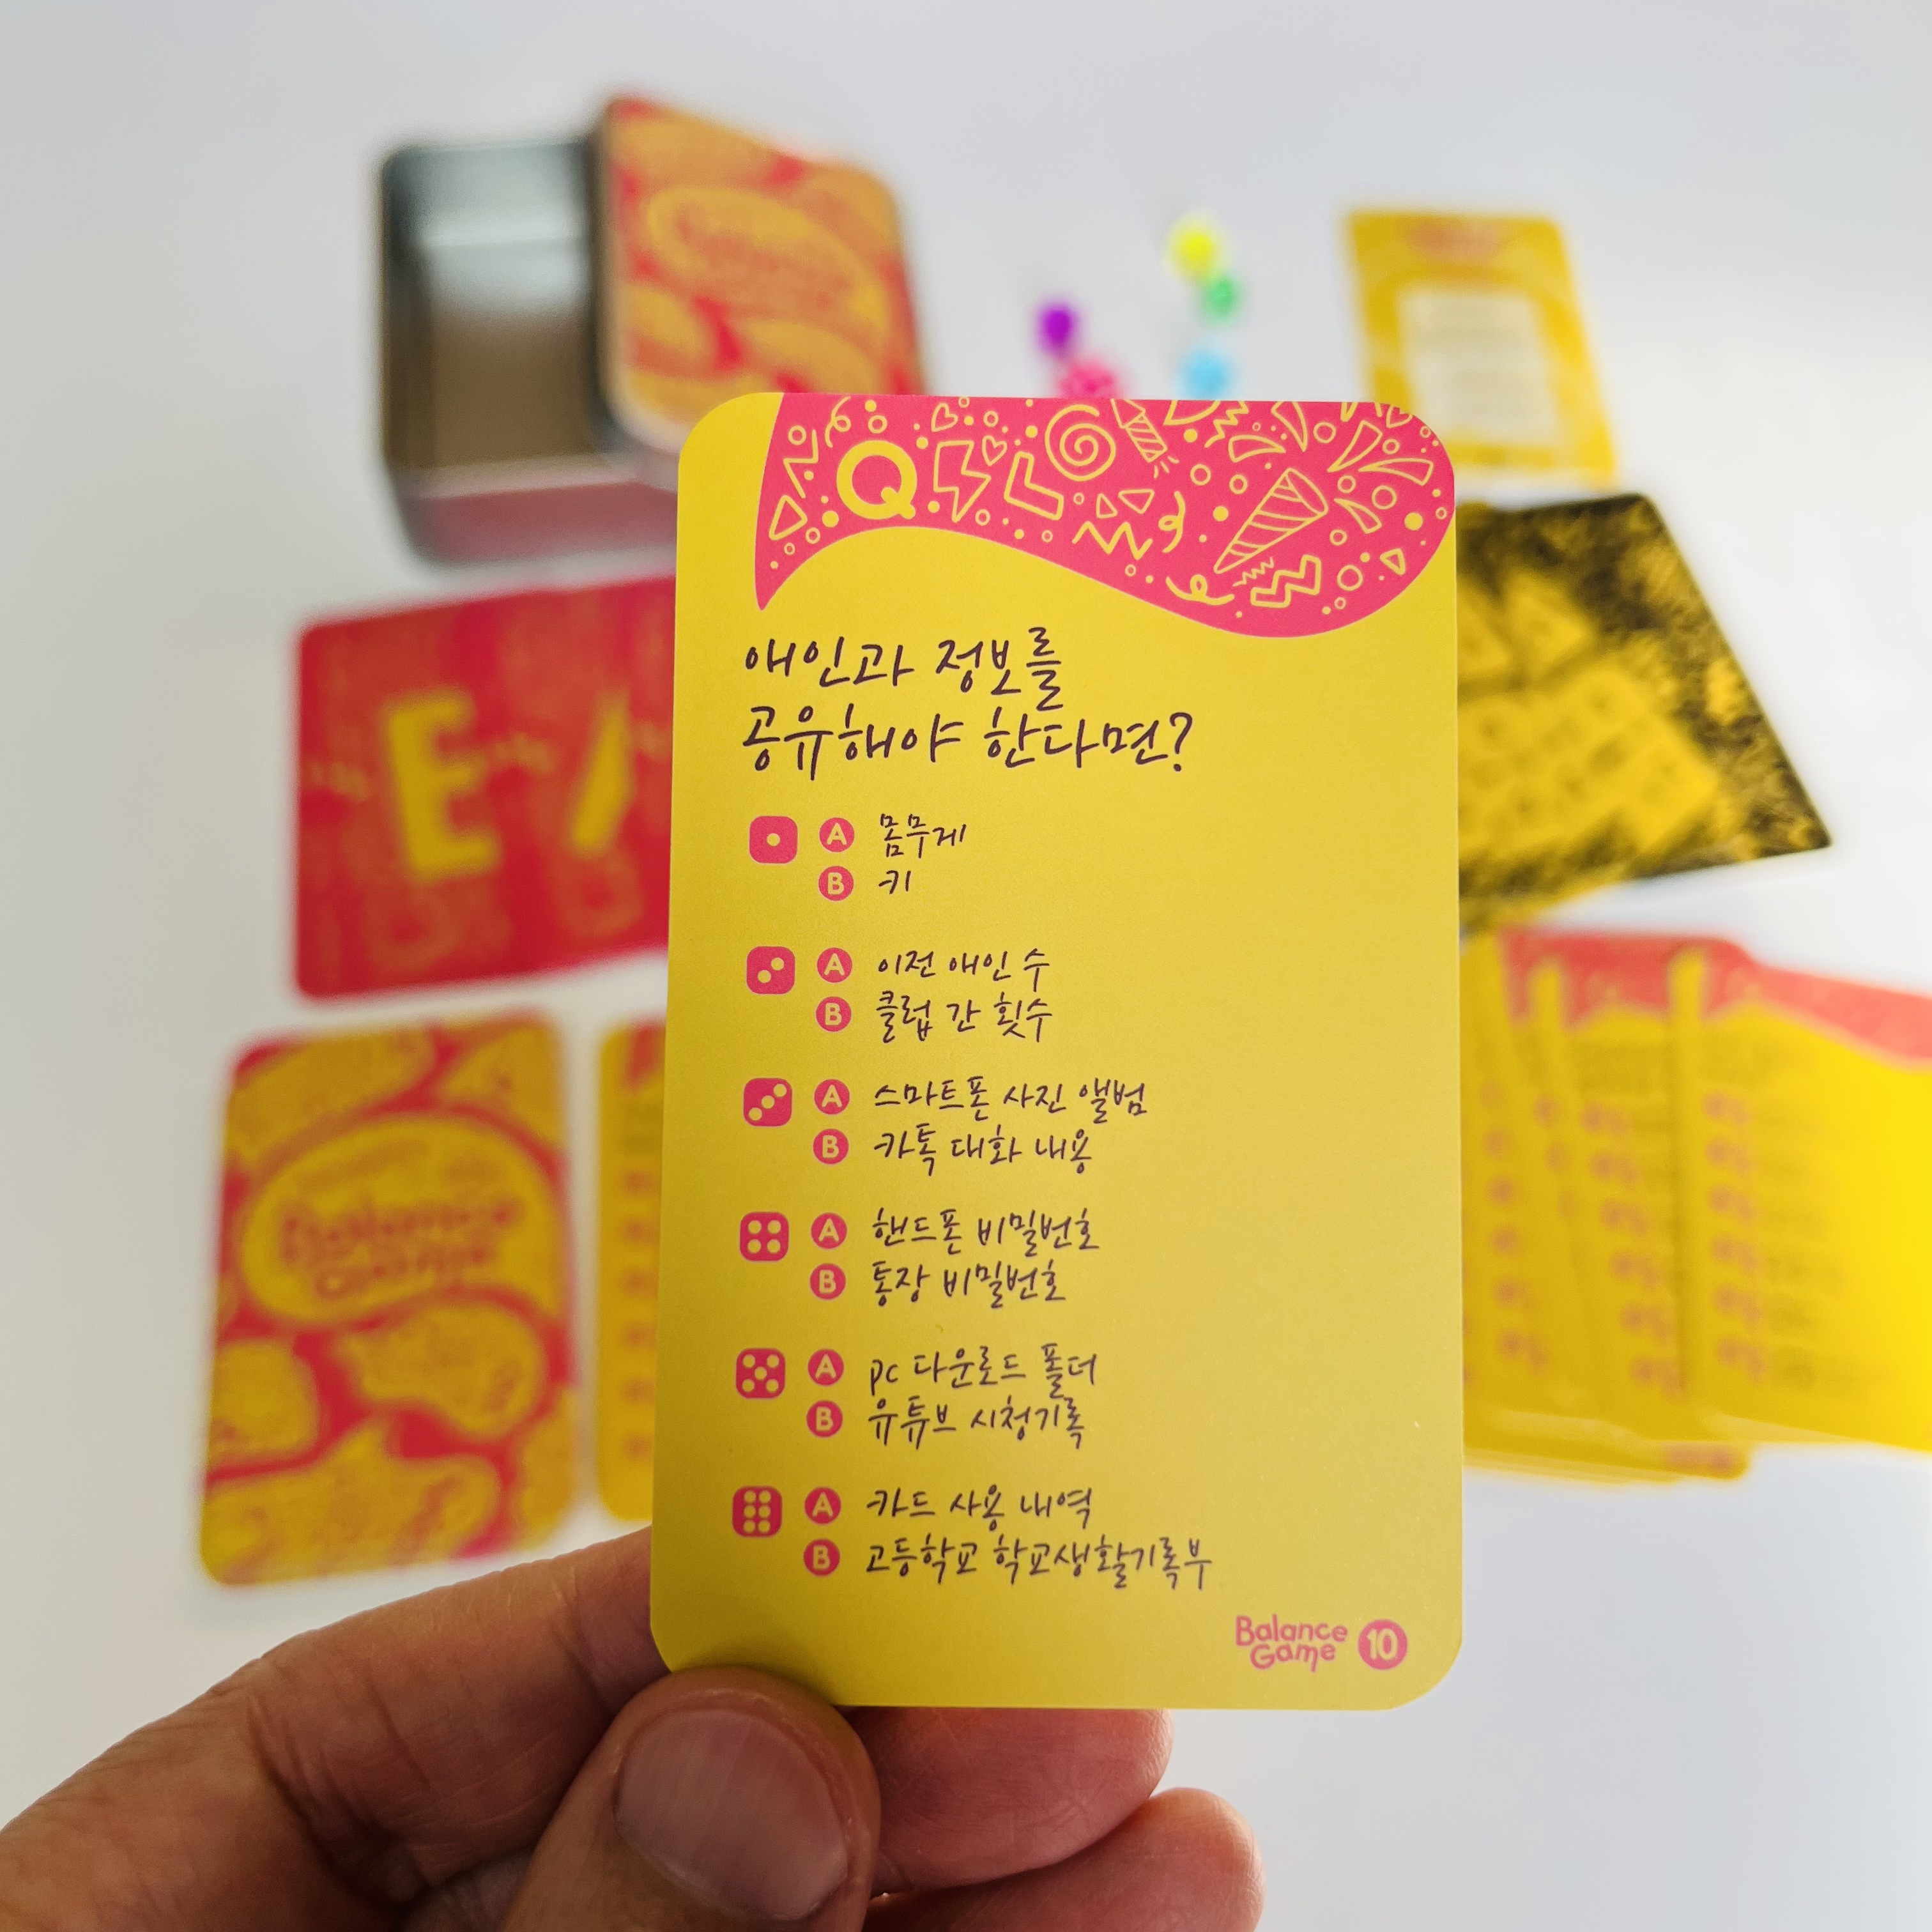 Q
애인과 정보를
공유해야 한다면?
A 몸무게
B 키
A 이전 애인 수
B 클럽 간 횟수
A 스마트폰 사진 앨범
B 카톡 대화 내용
A 핸드폰 비밀번호
B 통장 비밀번호
A pc 다운로드 폴더
B 유튜브 시청기록
A 카드 사용 내역
B 고등학교 학교생활기록부
Balance
Game 10
Balance
Game